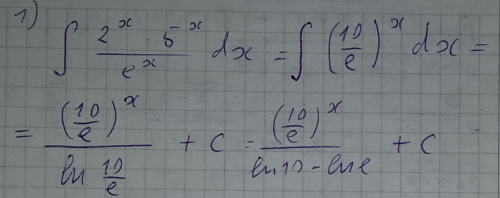 1)
∫ (2^x · 5^x)/(e^x) dx = ∫ (10/e)^x dx =
= (10/e)^x / (ln 10/e) + C = (10/e)^x / (ln10 - lne) + C